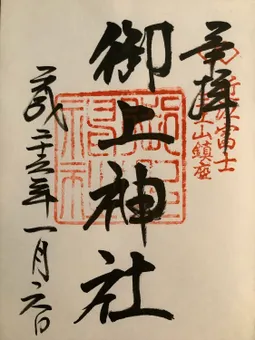 奉拝
近江富士
三上山鎮座
御上神社
平成二十五年一月六日
御上神社